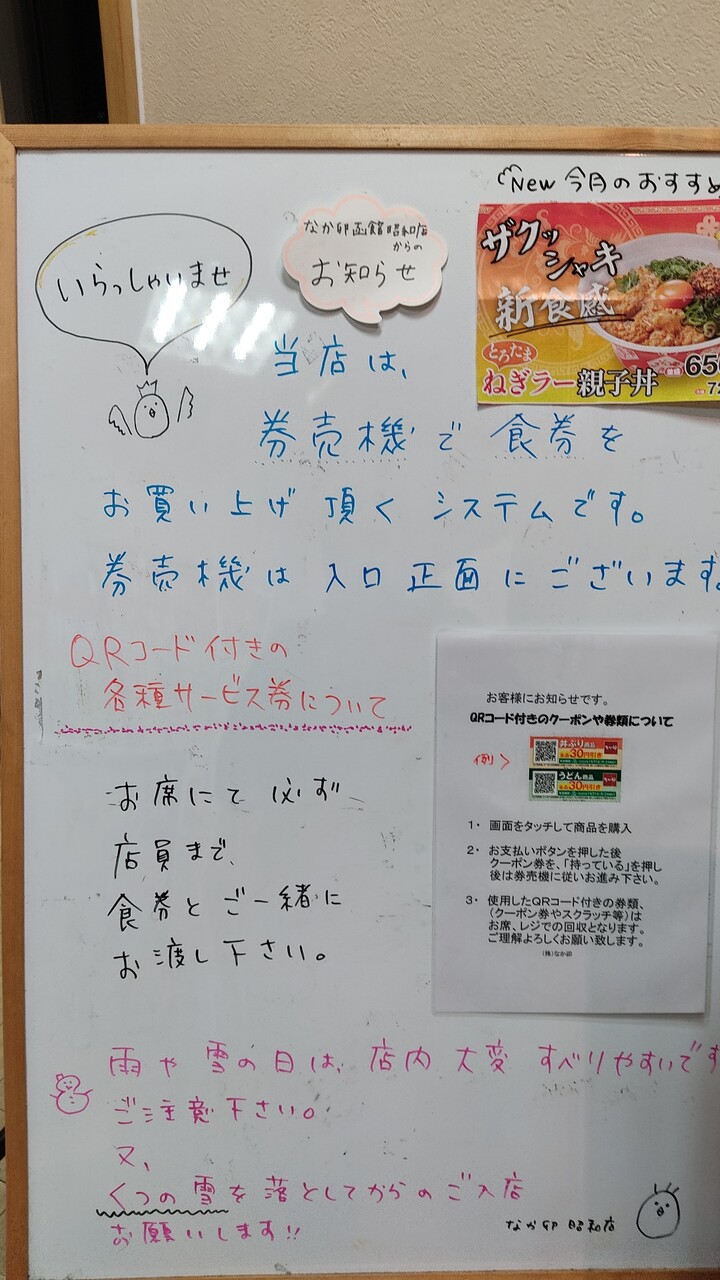 New 今月のおすすめ
いらっしゃいませ
なか卯函館昭和店
からの
お知らせ
ザクッ
シャキ
新食感
とろたま
ねぎラー親子丼
並盛 650
当店は、
券売機で食券を
お買い上げ頂くシステムです。
券売機は入口正面にございます。
QRコード付きの
各種サービス券について
お席にて必ず
店員まで、
食券とご一緒に
お渡し下さい。
お客様にお知らせです。
QRコード付きのクーポンや券類について
例>
丼ぶり商品
30円引き
うどん商品
30円引き
1・ 画面をタッチして商品を購入
2・ お支払いボタンを押した後
クーポン券を、「持っている」を押し
後は券売機に従いお進み下さい。
3・ 使用したQRコード付きの券類、
（クーポン券やスクラッチ等）は
お席、レジでの回収となります。
ご理解よろしくお願い致します。
(株)なか卯
雨や雪の日は、店内大変すべりやすいです
ご注意下さい。
又、
くつの雪を落としてからのご入店
お願いします!!
なか卯 昭和店